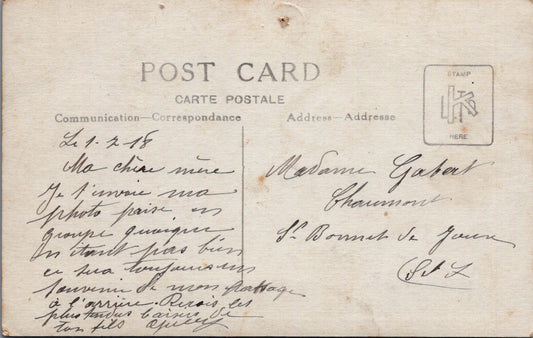 POST CARD
CARTE POSTALE
Communication—Correspondance
Address—Adresse
STAMP
HERE
Le 1-2-18
Ma chère mère
Je t'envoie ma
photo prise en
groupe quoique
n'étant pas bien
ce sera toujours un
souvenir de mon passage
à l'arrière. Reçois les
plus doux baisers de
ton fils
Madame Gabert
Chaumont
St Bonnet de Joux
S et L